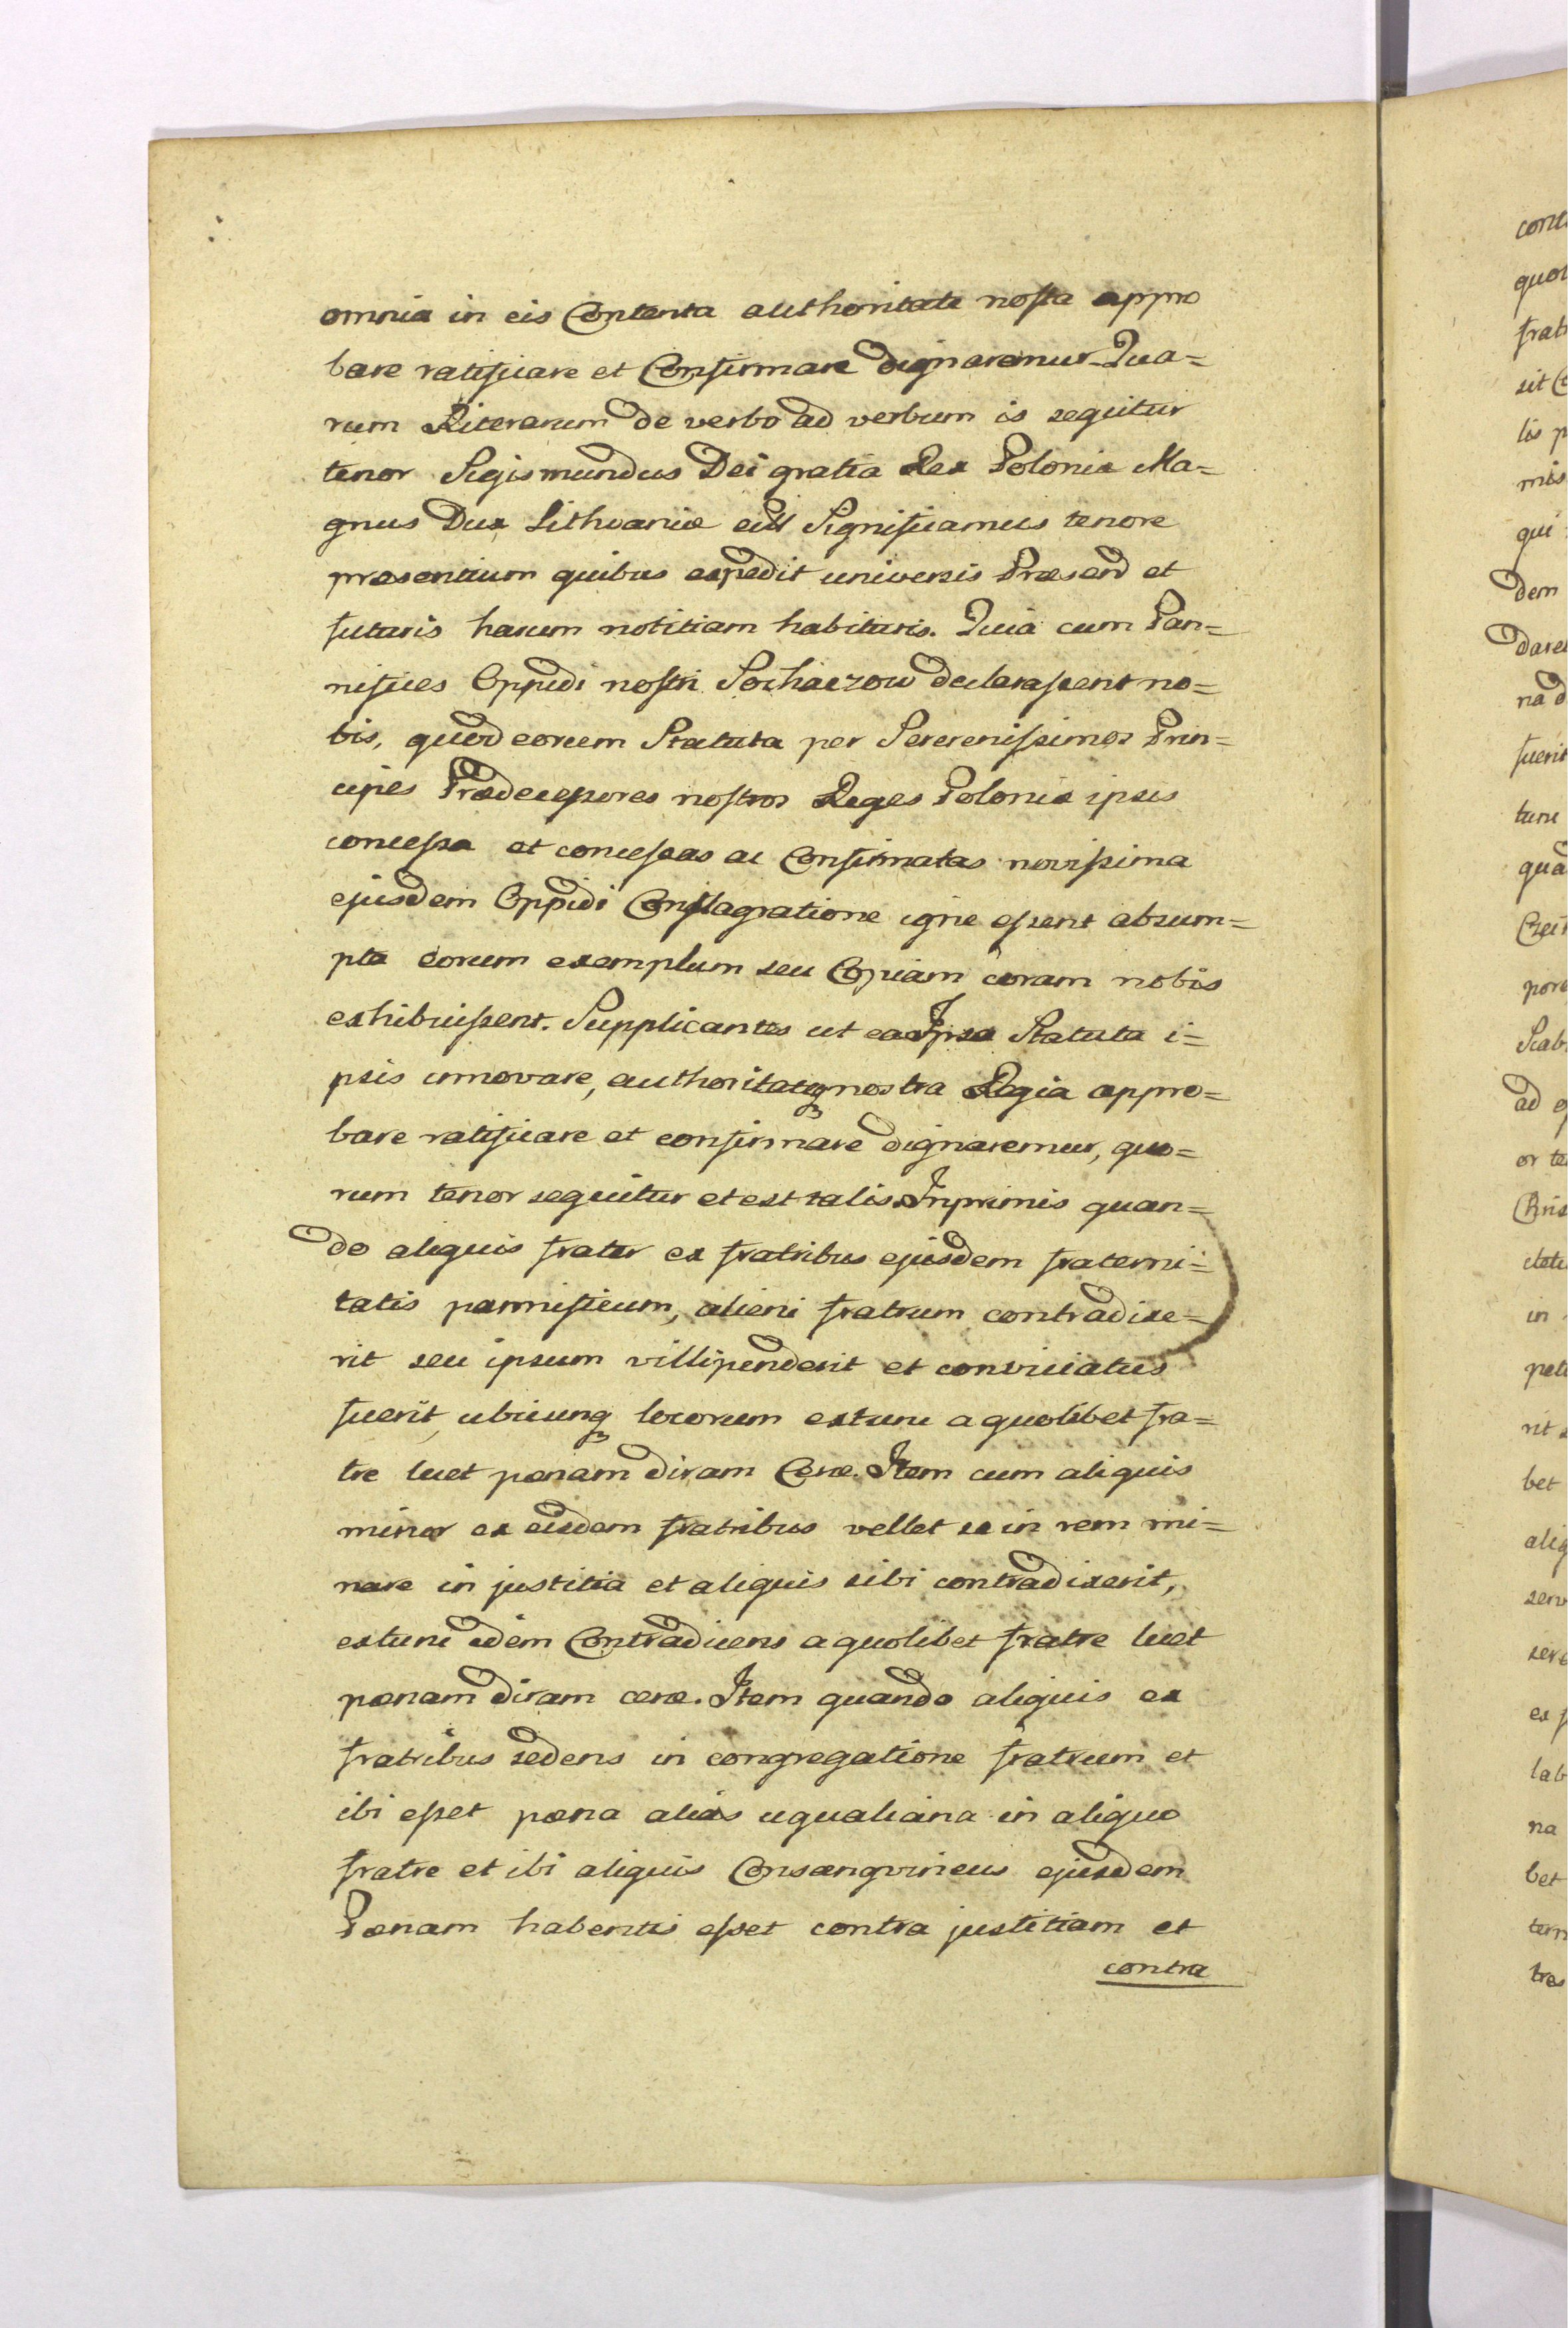 omnia in eis Contenta authoritate nosta appro
bare ratificare et Confirmare dignaremur Qua=
rum Literarum de verbo ad verbum is sequitur
tenor Sigismundus Dei gratia Rex Poloniæ Ma=
gnus Dux Lithvaniæ Significamus tenore
præsentium quibus expedit universis Præsend et
futuris harum notitiam habituris. Quia cum Pan=
nifices Oppidi nostri Sochaczow declarassent no=
bis, quod eorum Statuta per Sererenissimos Prin=
cipes Prædecessores nostros Reges Poloniæ ipsis
concessa et concessas ac Confirmatas novissima
ejusdem Oppidi Conflagratione igne essent absum=
pta eorum exemplum seu Copiam coram nobis
exhibuissent. Supplicantes ut ea Ipsa Statuta i=
psis innovare, authoritateq nostra Regia appro=
bare ratificare et confirmare dignaremur, quo=
rum tenor sequitur et est talis Inprimis quan=
do aliquis frater ex fratribus ejusdem fraterni=
tatis pannificum, alieni fratrum contradixe=
rit seu ipsum villipenderit et conviciatus
fuerit, ubicunq locorum extunc a quolibet fra=
tre luet pœnam diram Ceræ. Item cum aliquis
minor ex eisdem fratribus vellet se in rem mi=
nare in justitia et aliquis sibi contradixerit,
extunc idem Contradicens a quolibet fratre luet
pœnam diram ceræ. Item quando aliquis ex
fratribus sedens in congregatione fratrum et
ibi esset pœna alias ugualiana in aliquo
fratre et ibi aliquis Consangvineus ejusdem
Pœnam habentis esset contra justitiam et
contra